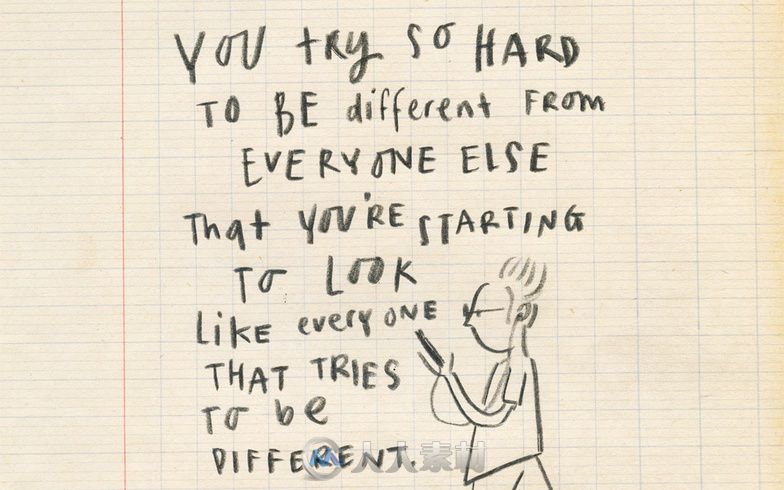 YOU TRY SO HARD
TO BE different FROM
EVERYONE ELSE
That YOU'RE STARTING
TO LOOK
LiKE everyONE
THAT TRIES
TO be
DIFFERENT.
人人素材